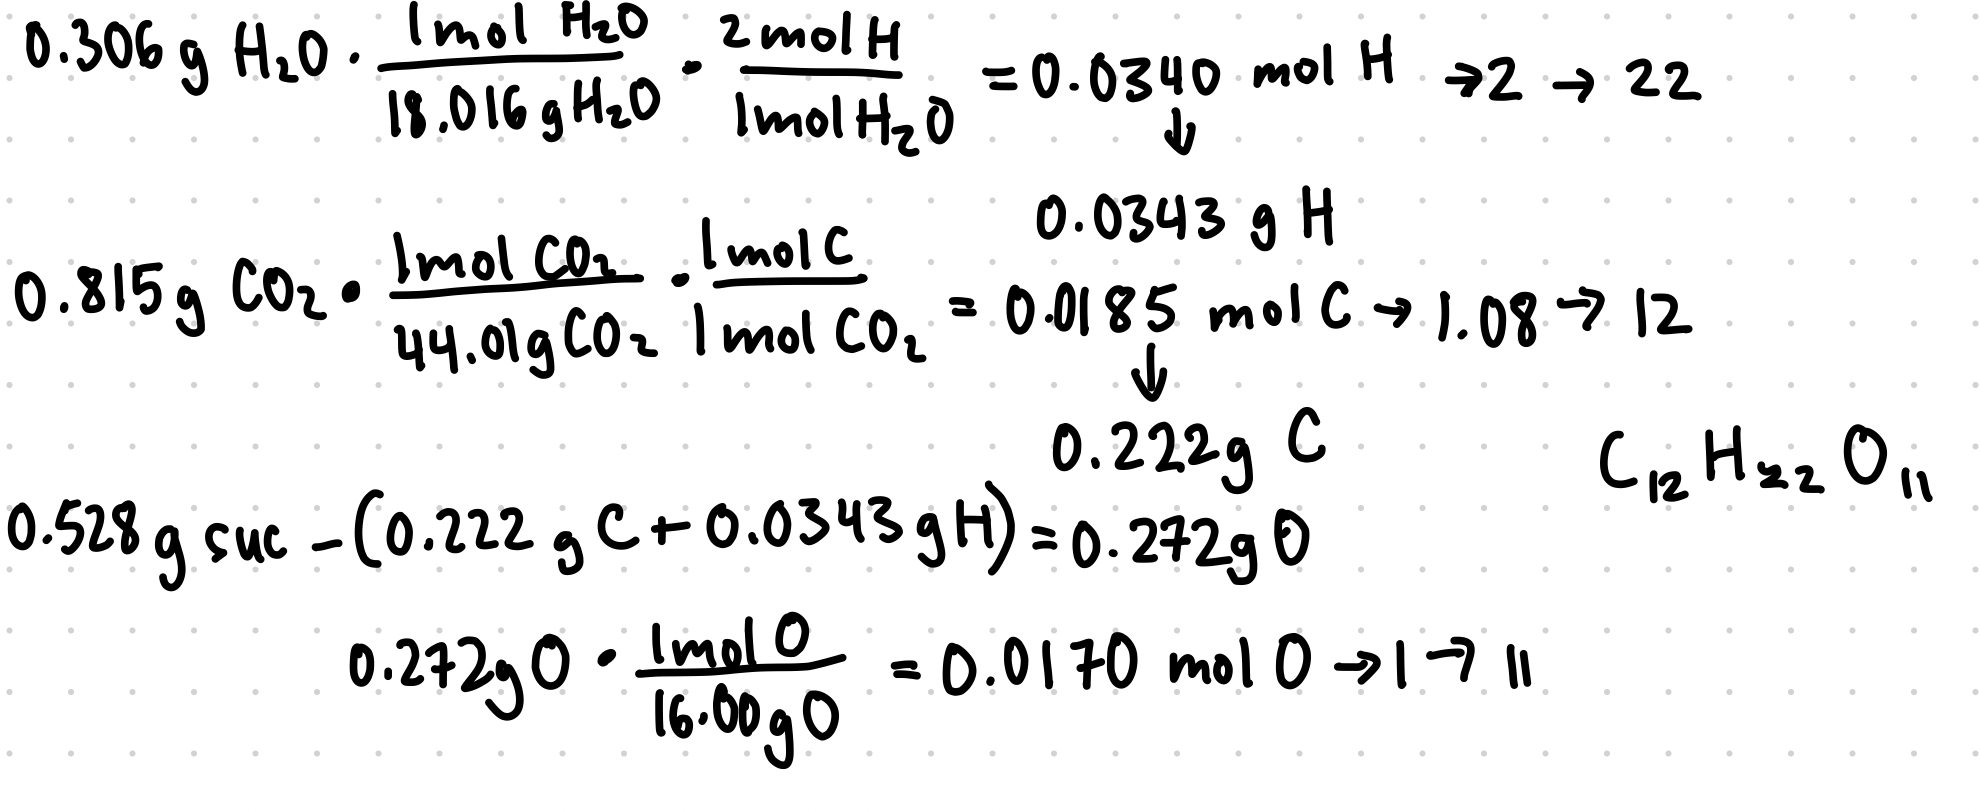 0.306 g H₂O · 1 mol H₂O / 18.016 g H₂O · 2 mol H / 1 mol H₂O = 0.0340 mol H → 2 → 22
↓
0.0343 g H
0.815 g CO₂ · 1 mol CO₂ / 44.01 g CO₂ · 1 mol C / 1 mol CO₂ = 0.0185 mol C → 1.08 → 12
↓
0.222 g C
C₁₂ H₂₂ O₁₁
0.528 g suc - (0.222 g C + 0.0343 g H) = 0.272 g O
0.272 g O · 1 mol O / 16.00 g O = 0.0170 mol O → 1 → 11